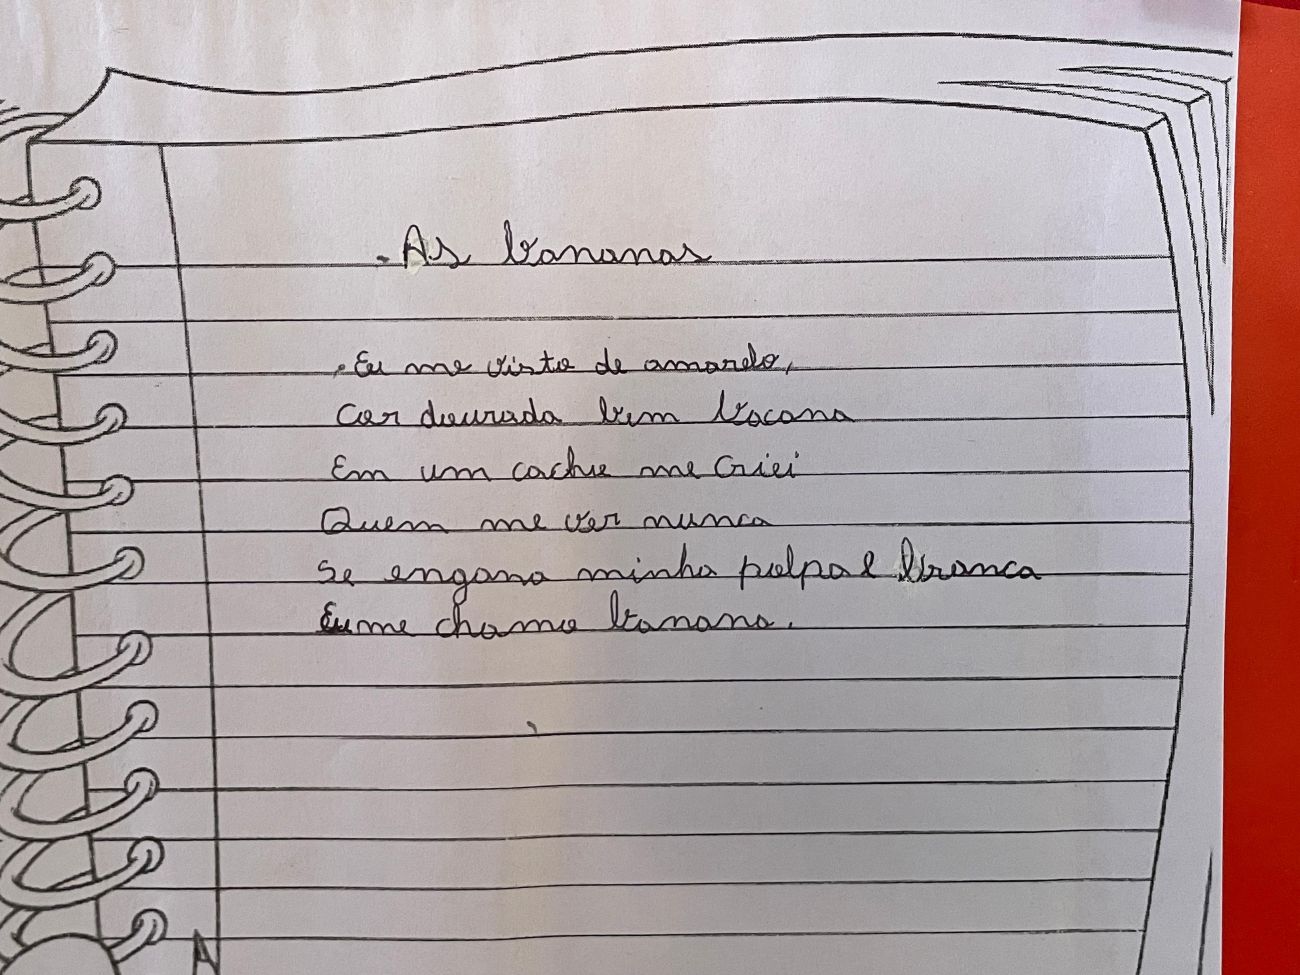 As bananas
Eu me visto de amarelo,
Cor dourada bem bacana
Em um cacho me criei
Quem me ver nunca
se engana minha polpa é branca
Eu me chamo banana.